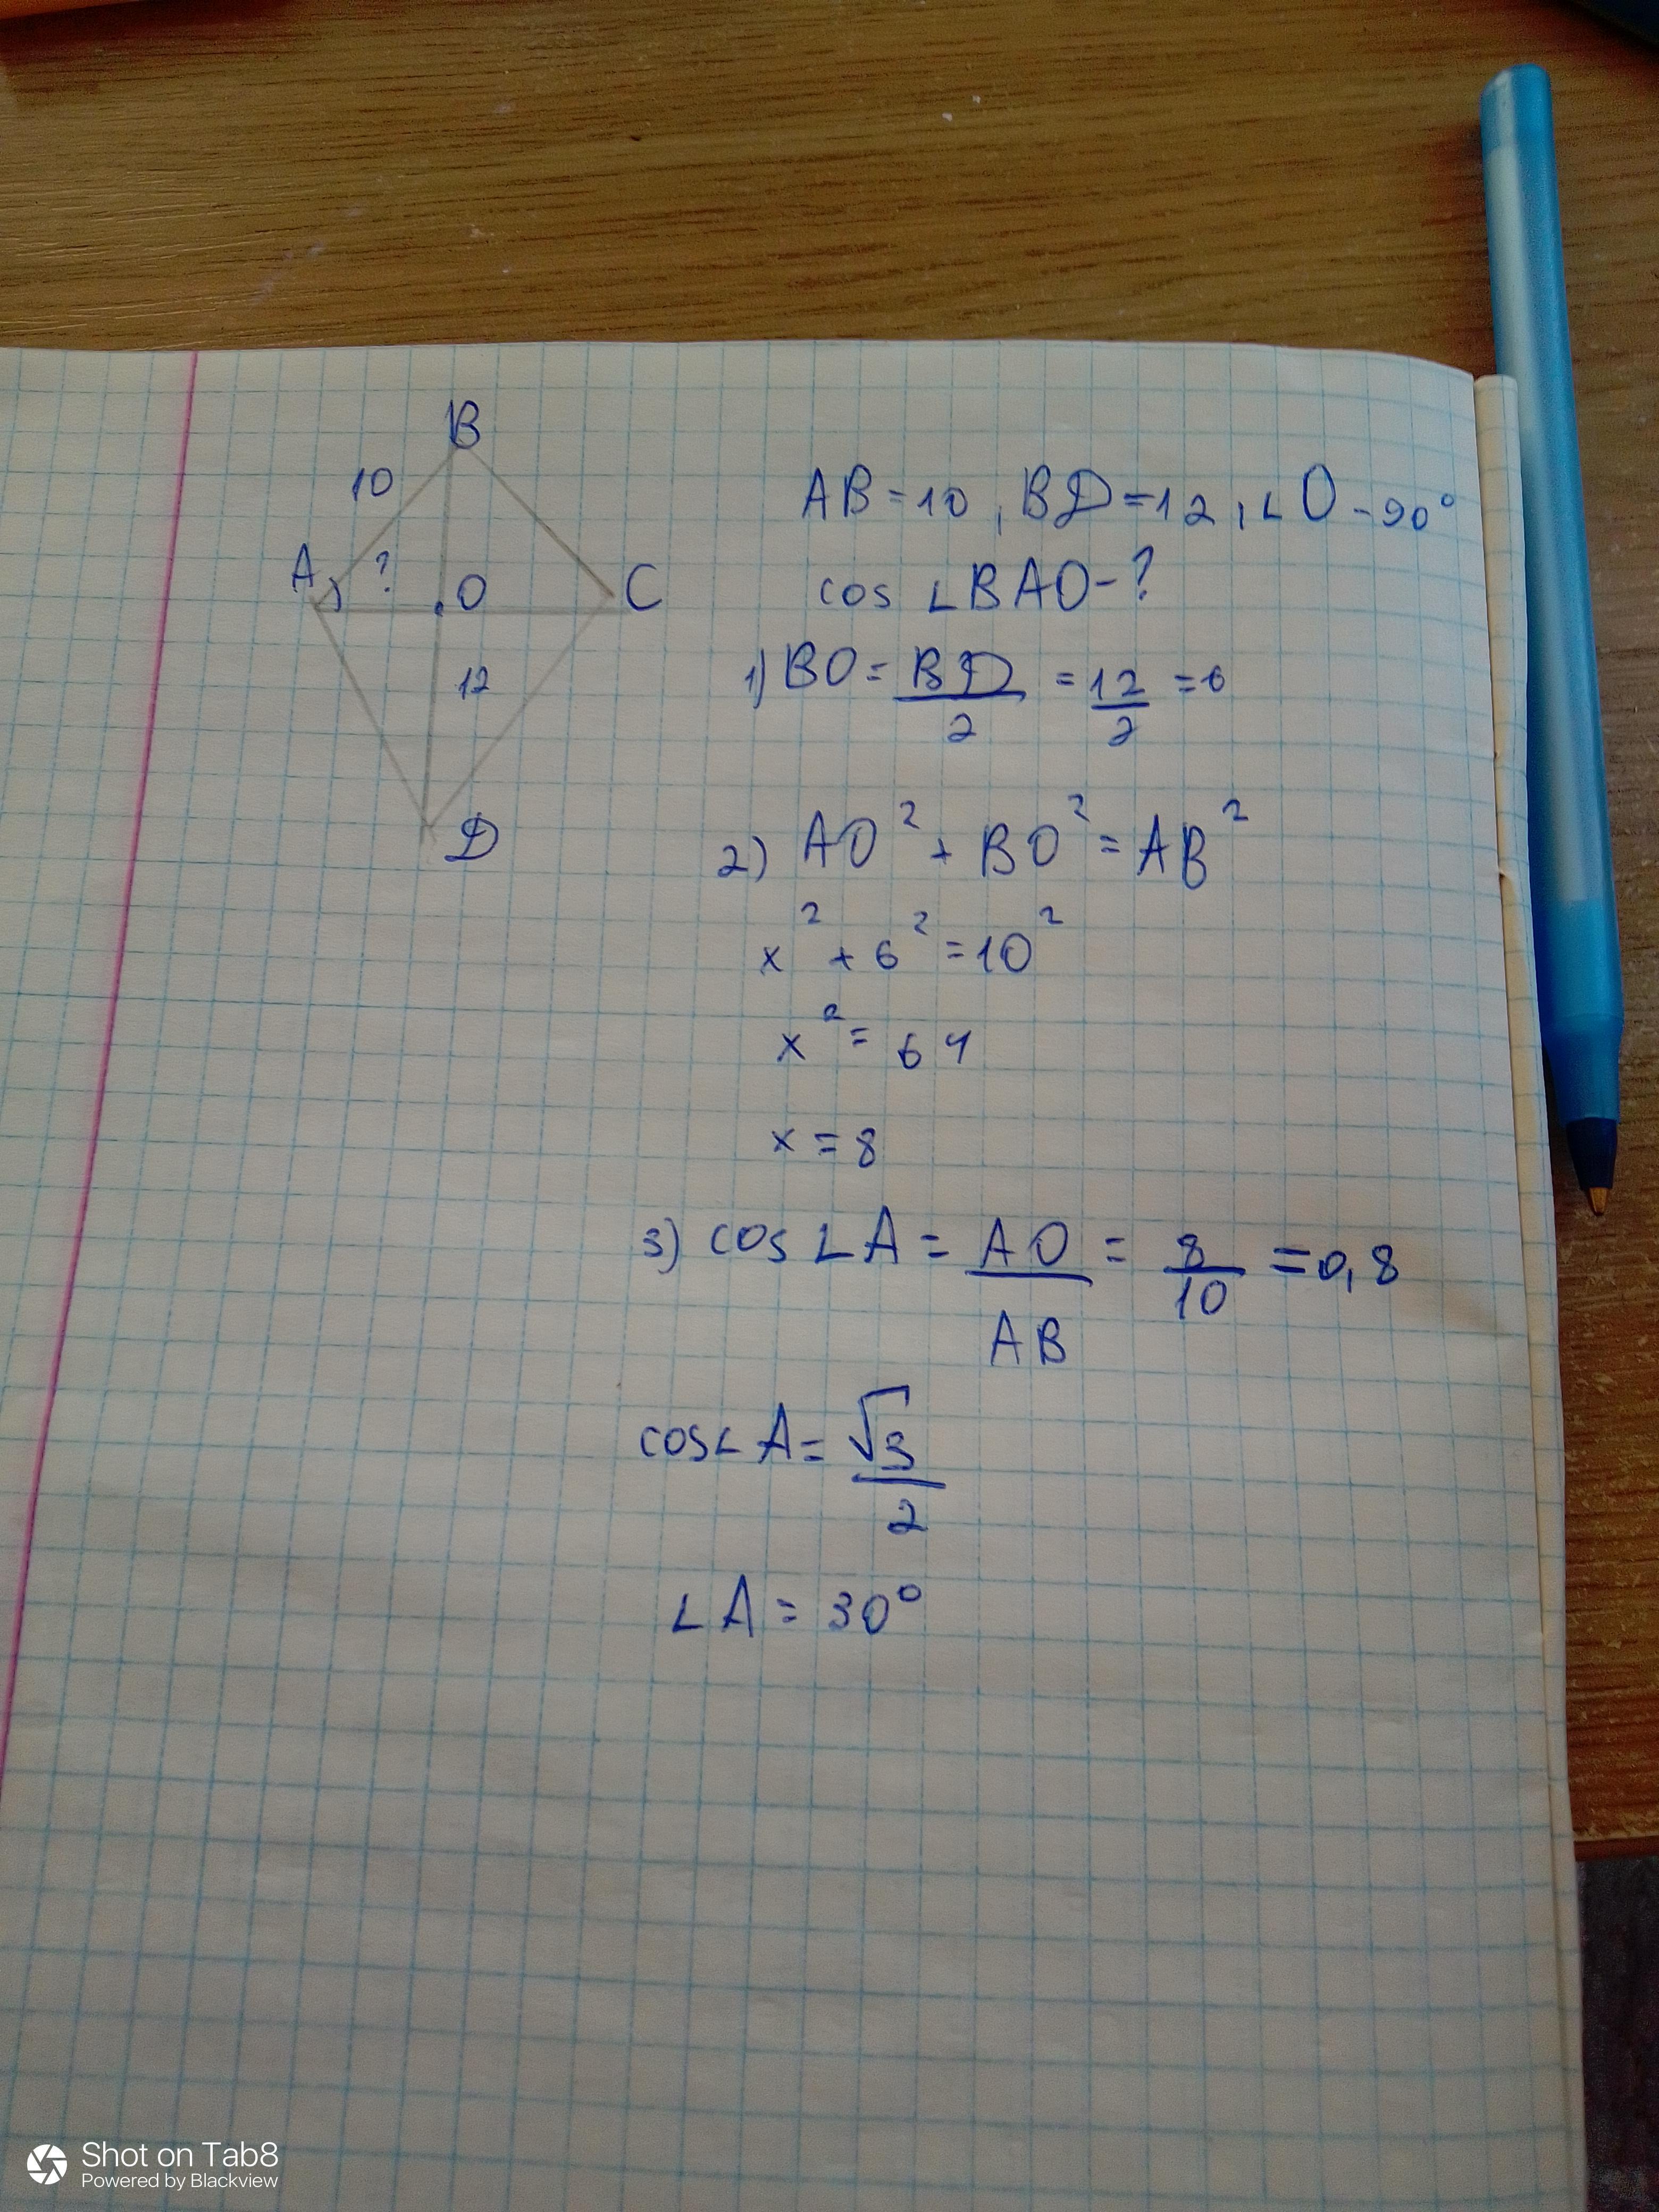 B
10
A ? O C
12
D
AB = 10, BD = 12, ∠O - 90°
cos ∠BAO - ?
1) BO = BD/2 = 12/2 = 6
2) AO² + BO² = AB²
x² + 6² = 10²
x² = 64
x = 8
3) cos ∠A = AO/AB = 8/10 = 0,8
cos∠A = √3/2
∠A = 30°
Shot on Tab8
Powered by Blackview